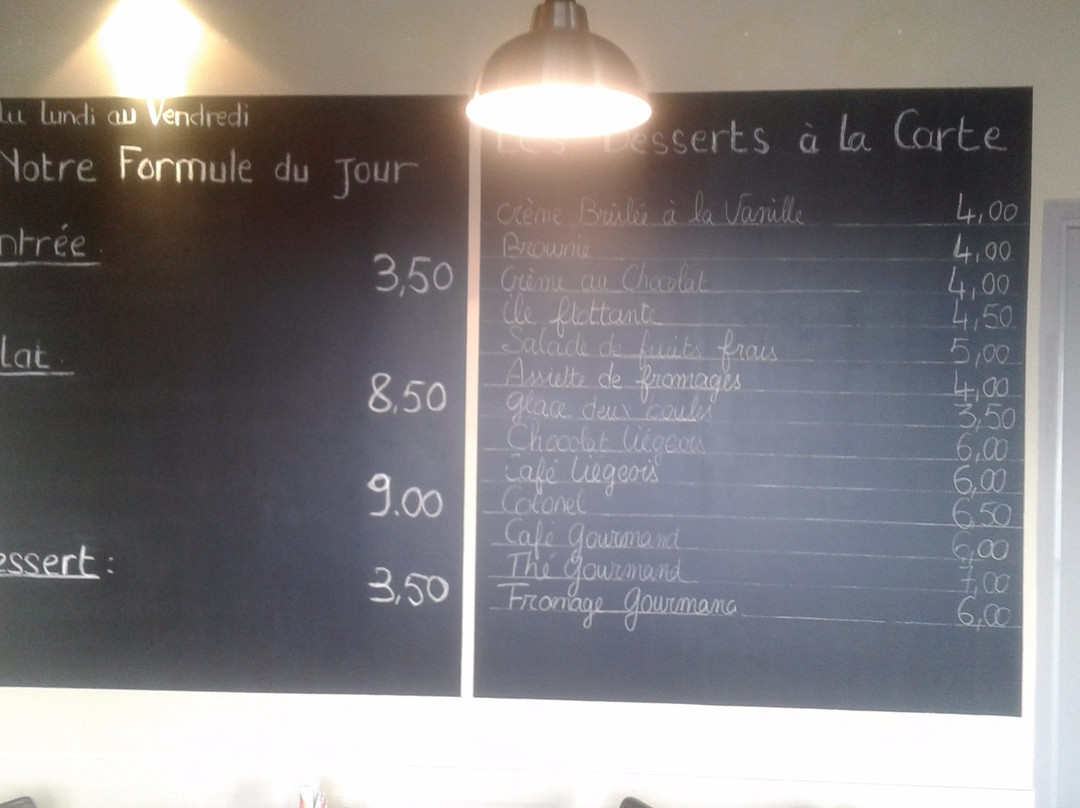 du Lundi au Vendredi
Notre Formule du Jour
ntrée :
3,50
lat :
8,50
9.00
essert :
3,50
Les Desserts à la Carte
Crème Brûlée à la Vanille 4,00
Brownie 4,00
Crème au Chocolat 4,00
île flottante 4,50
Salade de fruits frais 5,00
Assiette de fromages 4,00
glace deux boules 3,50
Chocolat liégeois 6,00
Café liégeois 6,00
Colonel 6,50
Café gourmand 6,00
Thé gourmand 7,00
Fromage gourmand 6,00